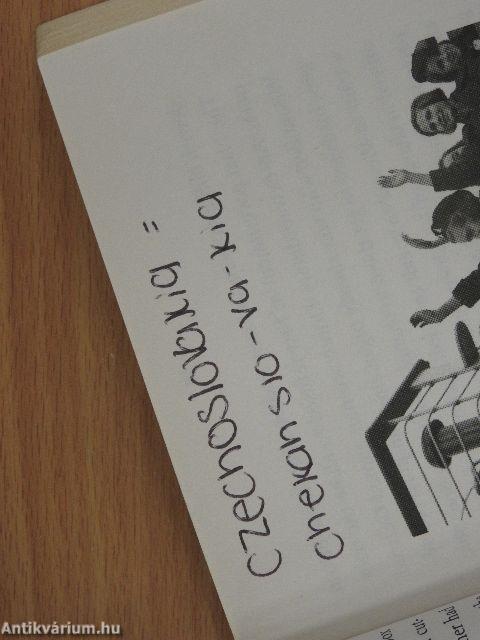 Czechoslovakia =
Chekan slo-va-kia
Antikvárium.hu